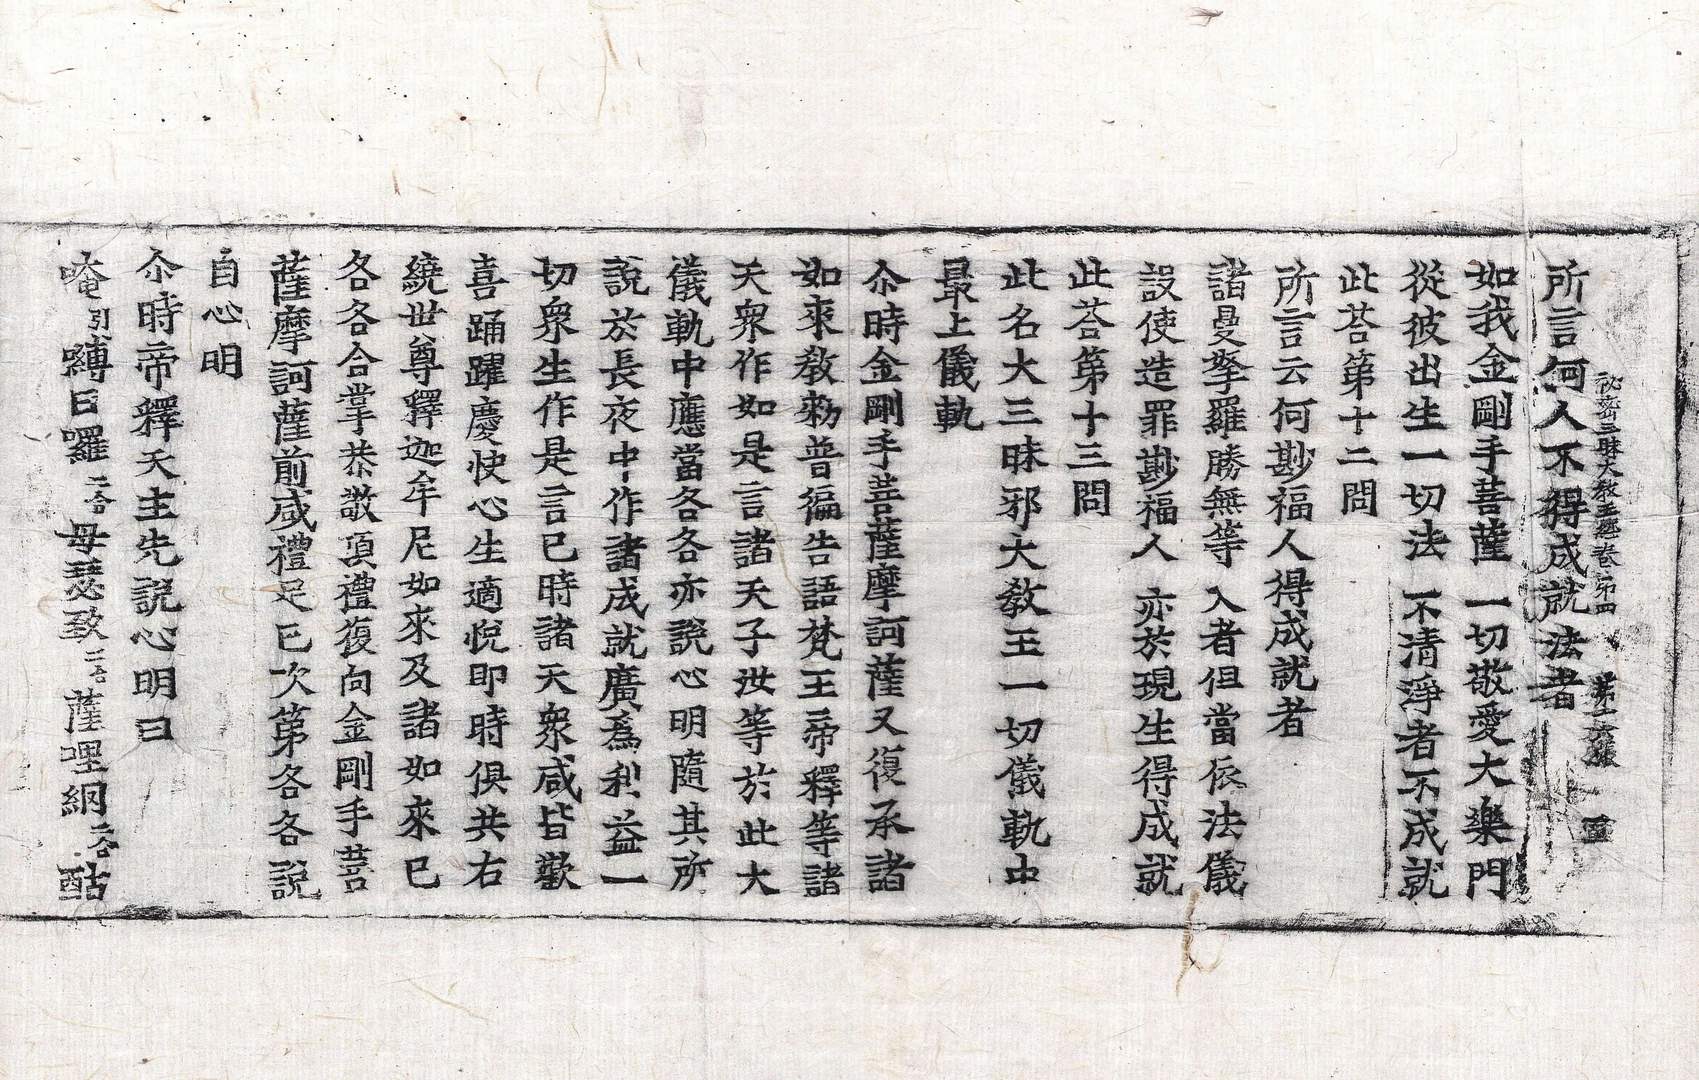 祕密三昧大教王經卷第四 第十六張 靈
所言何人不得成就法者
如我金剛手菩薩 一切敬愛大樂門
從彼出生一切法 不清淨者不成就
此荅第十二問
所言云何尠福人得成就者
諸曼拏羅勝無等 入者但當依法儀
設使造罪尠福人 亦於現生得成就
此荅第十三問
此名大三昧邪大教王一切儀軌中
最上儀軌
尒時金剛手菩薩摩訶薩又復承諸
如來教勑普徧告語梵王帝釋等諸
天衆作如是言諸天子汝等於此大
儀軌中應當各各亦說心明隨其所
說於長夜中作諸成就廣爲利益一
切衆生作是言已時諸天衆咸皆歡
喜踊躍慶快心生適悅即時俱共右
繞世尊釋迦牟尼如來及諸如來已
各各合掌恭敬頂禮復向金剛手菩
薩摩訶薩前咸禮足已次第各各說
自心明
尒時帝釋天主先說心明曰
唵引嚩日囉二合母瑟致二合薩哩網二合酤